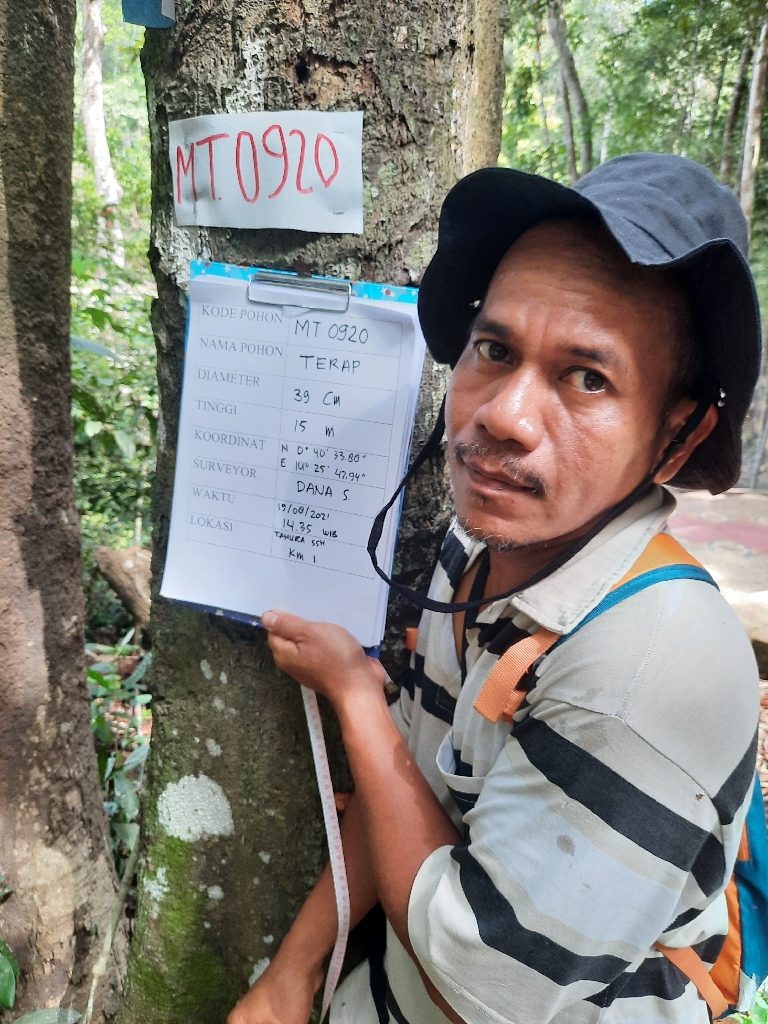 MT.0920
KODE POHON MT 0920
NAMA POHON TERAP
DIAMETER 39 Cm
TINGGI 15 m
KOORDINAT N 0° 40' 33.80"
E 101° 25' 42.94"
SURVEYOR DANA S.
WAKTU 19/08/2021
14.35 WIB
LOKASI TAHURA SSH
KM 1